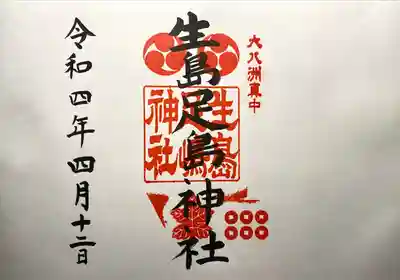 大八洲真中
生島足島神社
生島
足嶋
神社
令和四年四月十二日